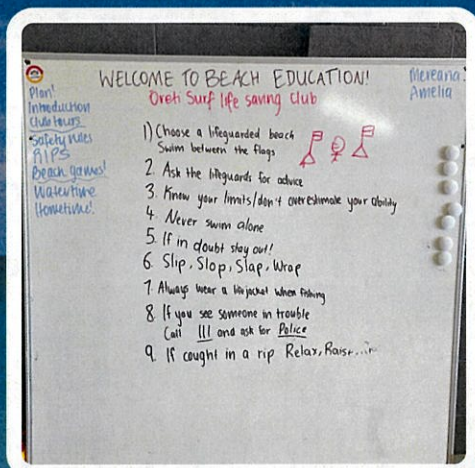 WELCOME TO BEACH EDUCATION!
Oreti Surf life saving Club
Mereana
Amelia
Plan!
Introduction
Club tours
Safety rules
RIPS
Beach games!
Watertime
Hometime!
1) Choose a lifeguarded beach
Swim between the flags
2. Ask the lifeguards for advice
3. Know your limits/don't overestimate your ability
4. Never swim alone
5. If in doubt stay out!
6. Slip, Slop, Slap, Wrap
7. Always wear a lifejacket when fishing
8. If you see someone in trouble
Call 111 and ask for Police
9. If caught in a rip Relax, Raise...